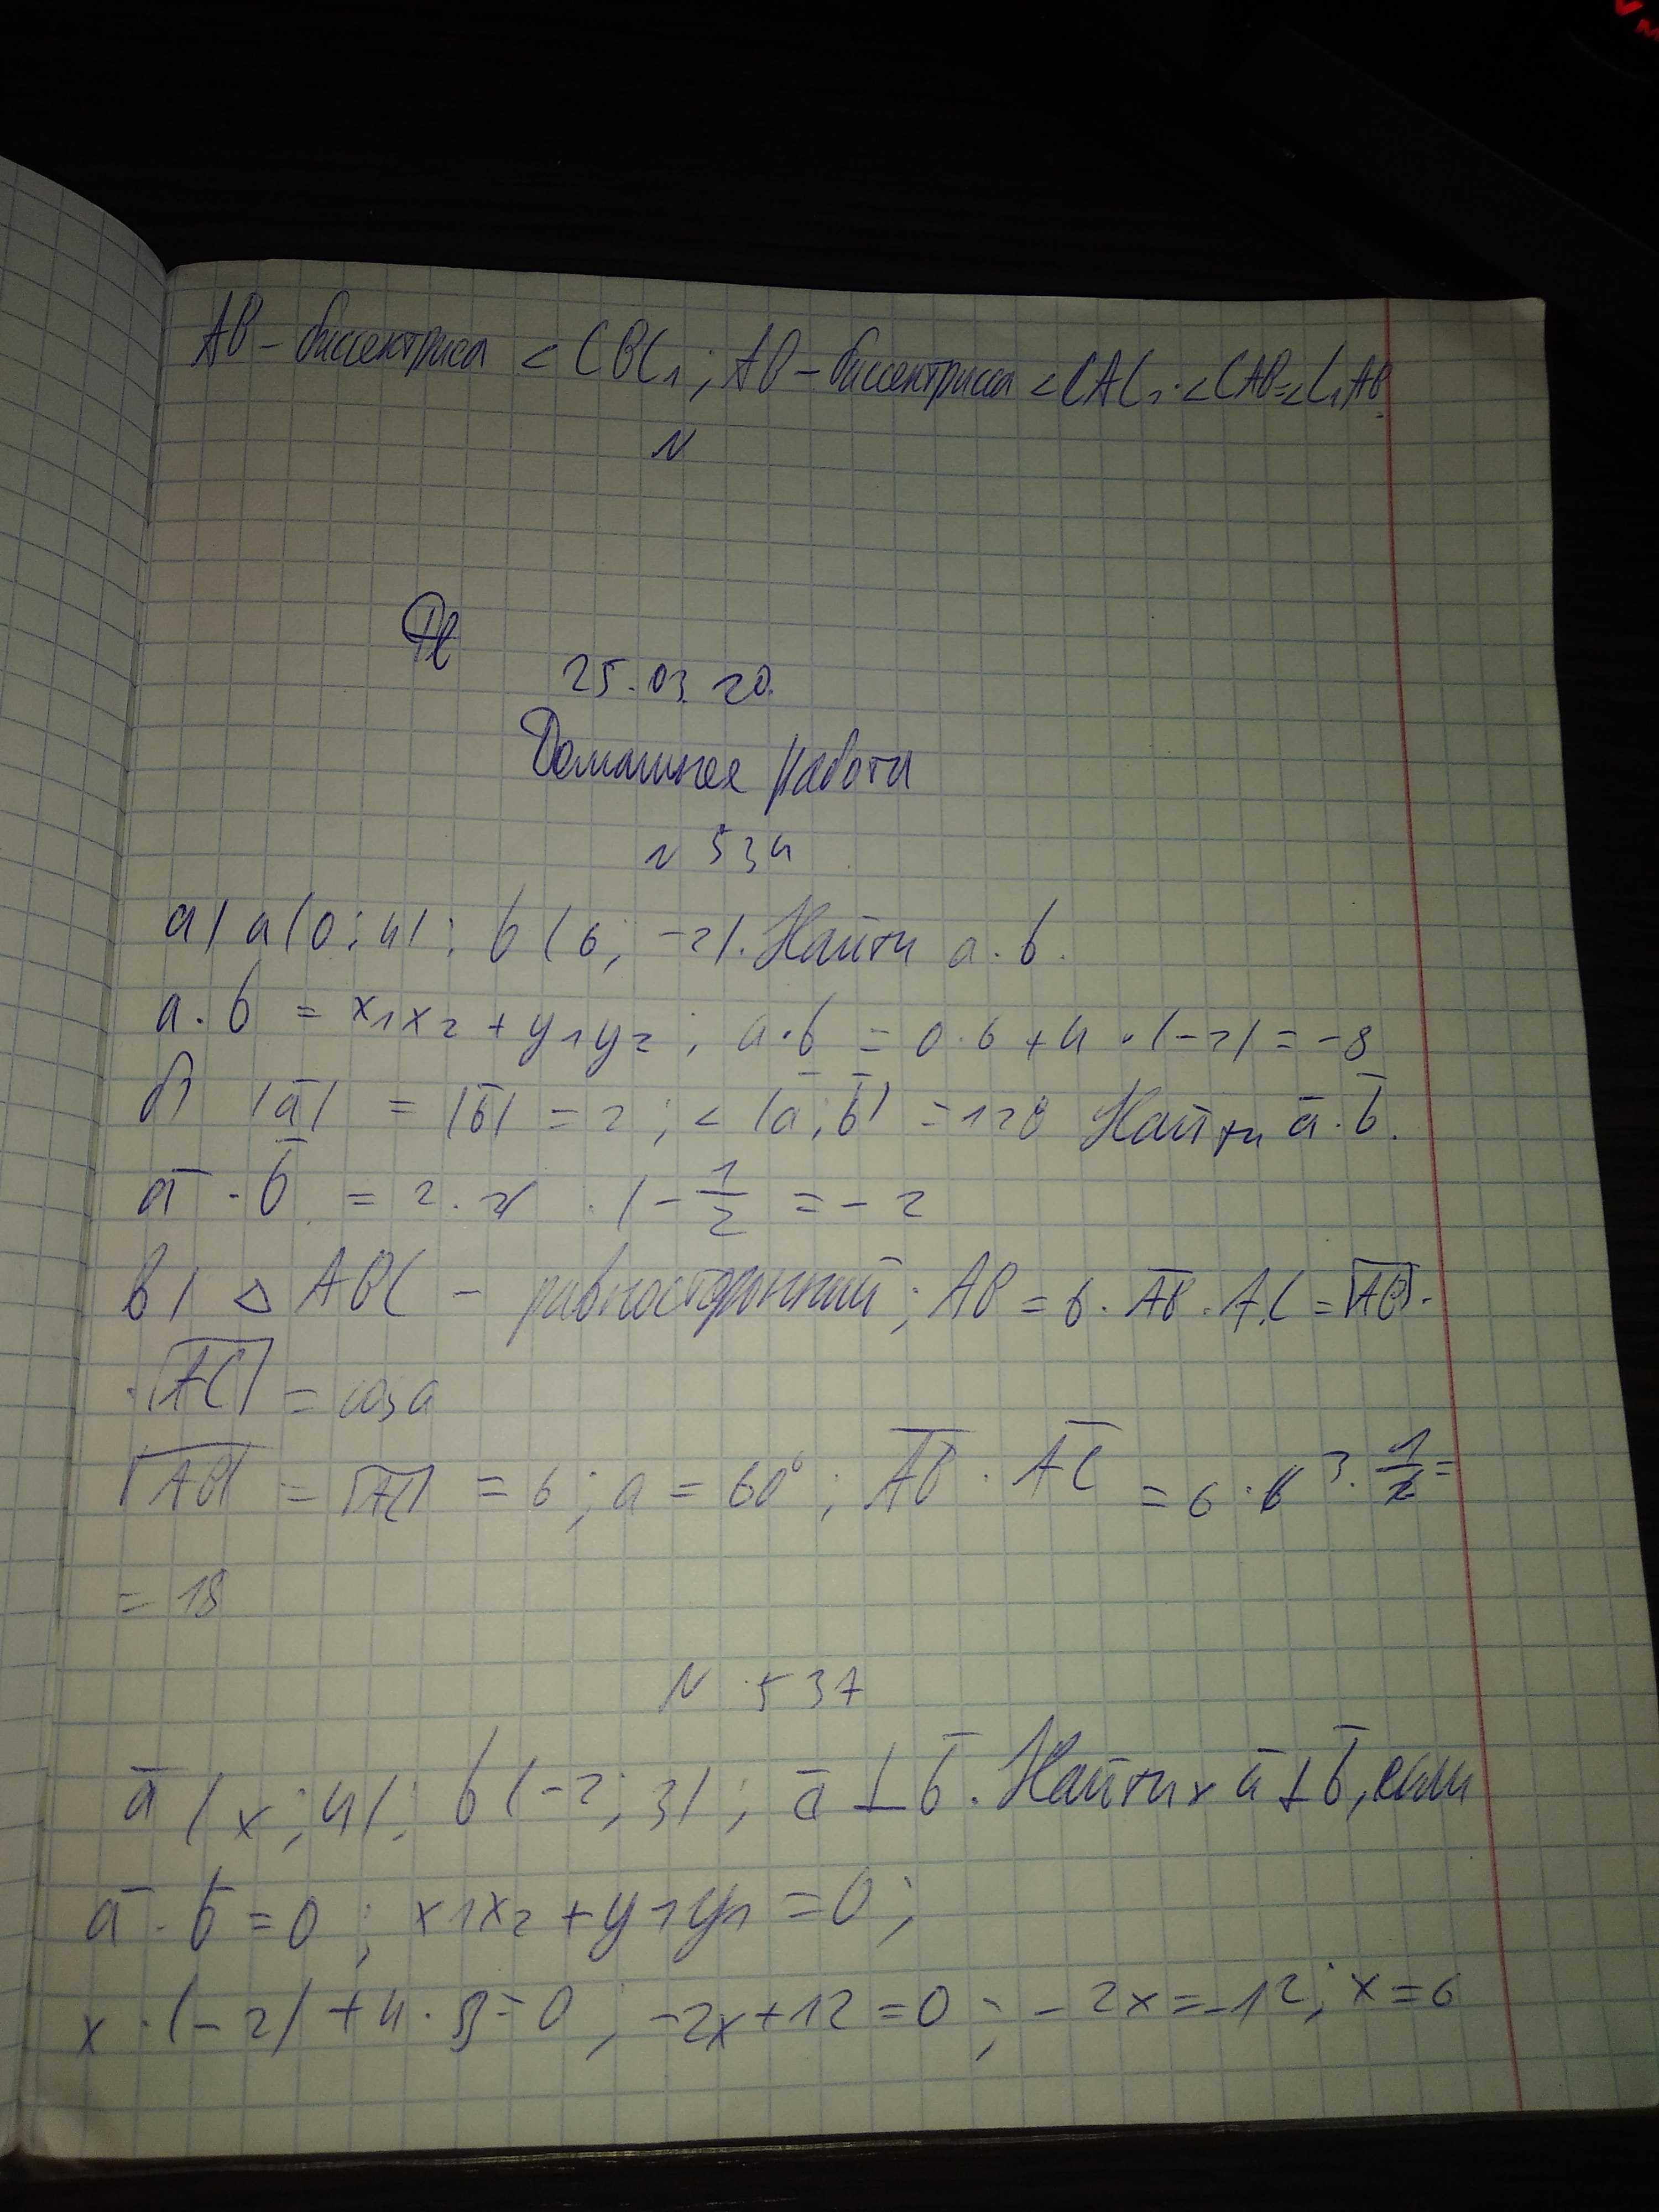 АВ – биссектриса < СВС₁; АВ – биссектриса < САС₁. < САВ = < С₁АВ
N
25.03.20.
Домашнее работа
N 534
а) a(0; 4); b(6; -2). Найти a · b.
a · b = x₁x₂ + y₁y₂; a · b = 0 · 6 + 4 · (-2) = -8
б) |a̅| = |b̅| = 2; < (a̅; b̅) = 120 Найти a̅ · b̅.
a̅ · b̅ = 2 · 2 · (- 1/2 = - 2
в) △ АВС – равносторонний; АВ = 6. A̅B̅ · АС = |A̅B̅| ·
· |A̅C̅| = cos a
|A̅B̅| = |A̅C̅| = 6; a = 60°; A̅B̅ · A̅C̅ = 6 · 6 ³ · 1/2 =
= 18
N 537
a̅ (x; 4); b(-2; 3); a̅ ⊥ b̅. Найти x a̅ ⊥ b̅, если
a̅ · b̅ = 0; x₁x₂ + y₁y₁ = 0;
x · (-2) + 4 · 3 = 0; -2x + 12 = 0; - 2x = -12; x = 6